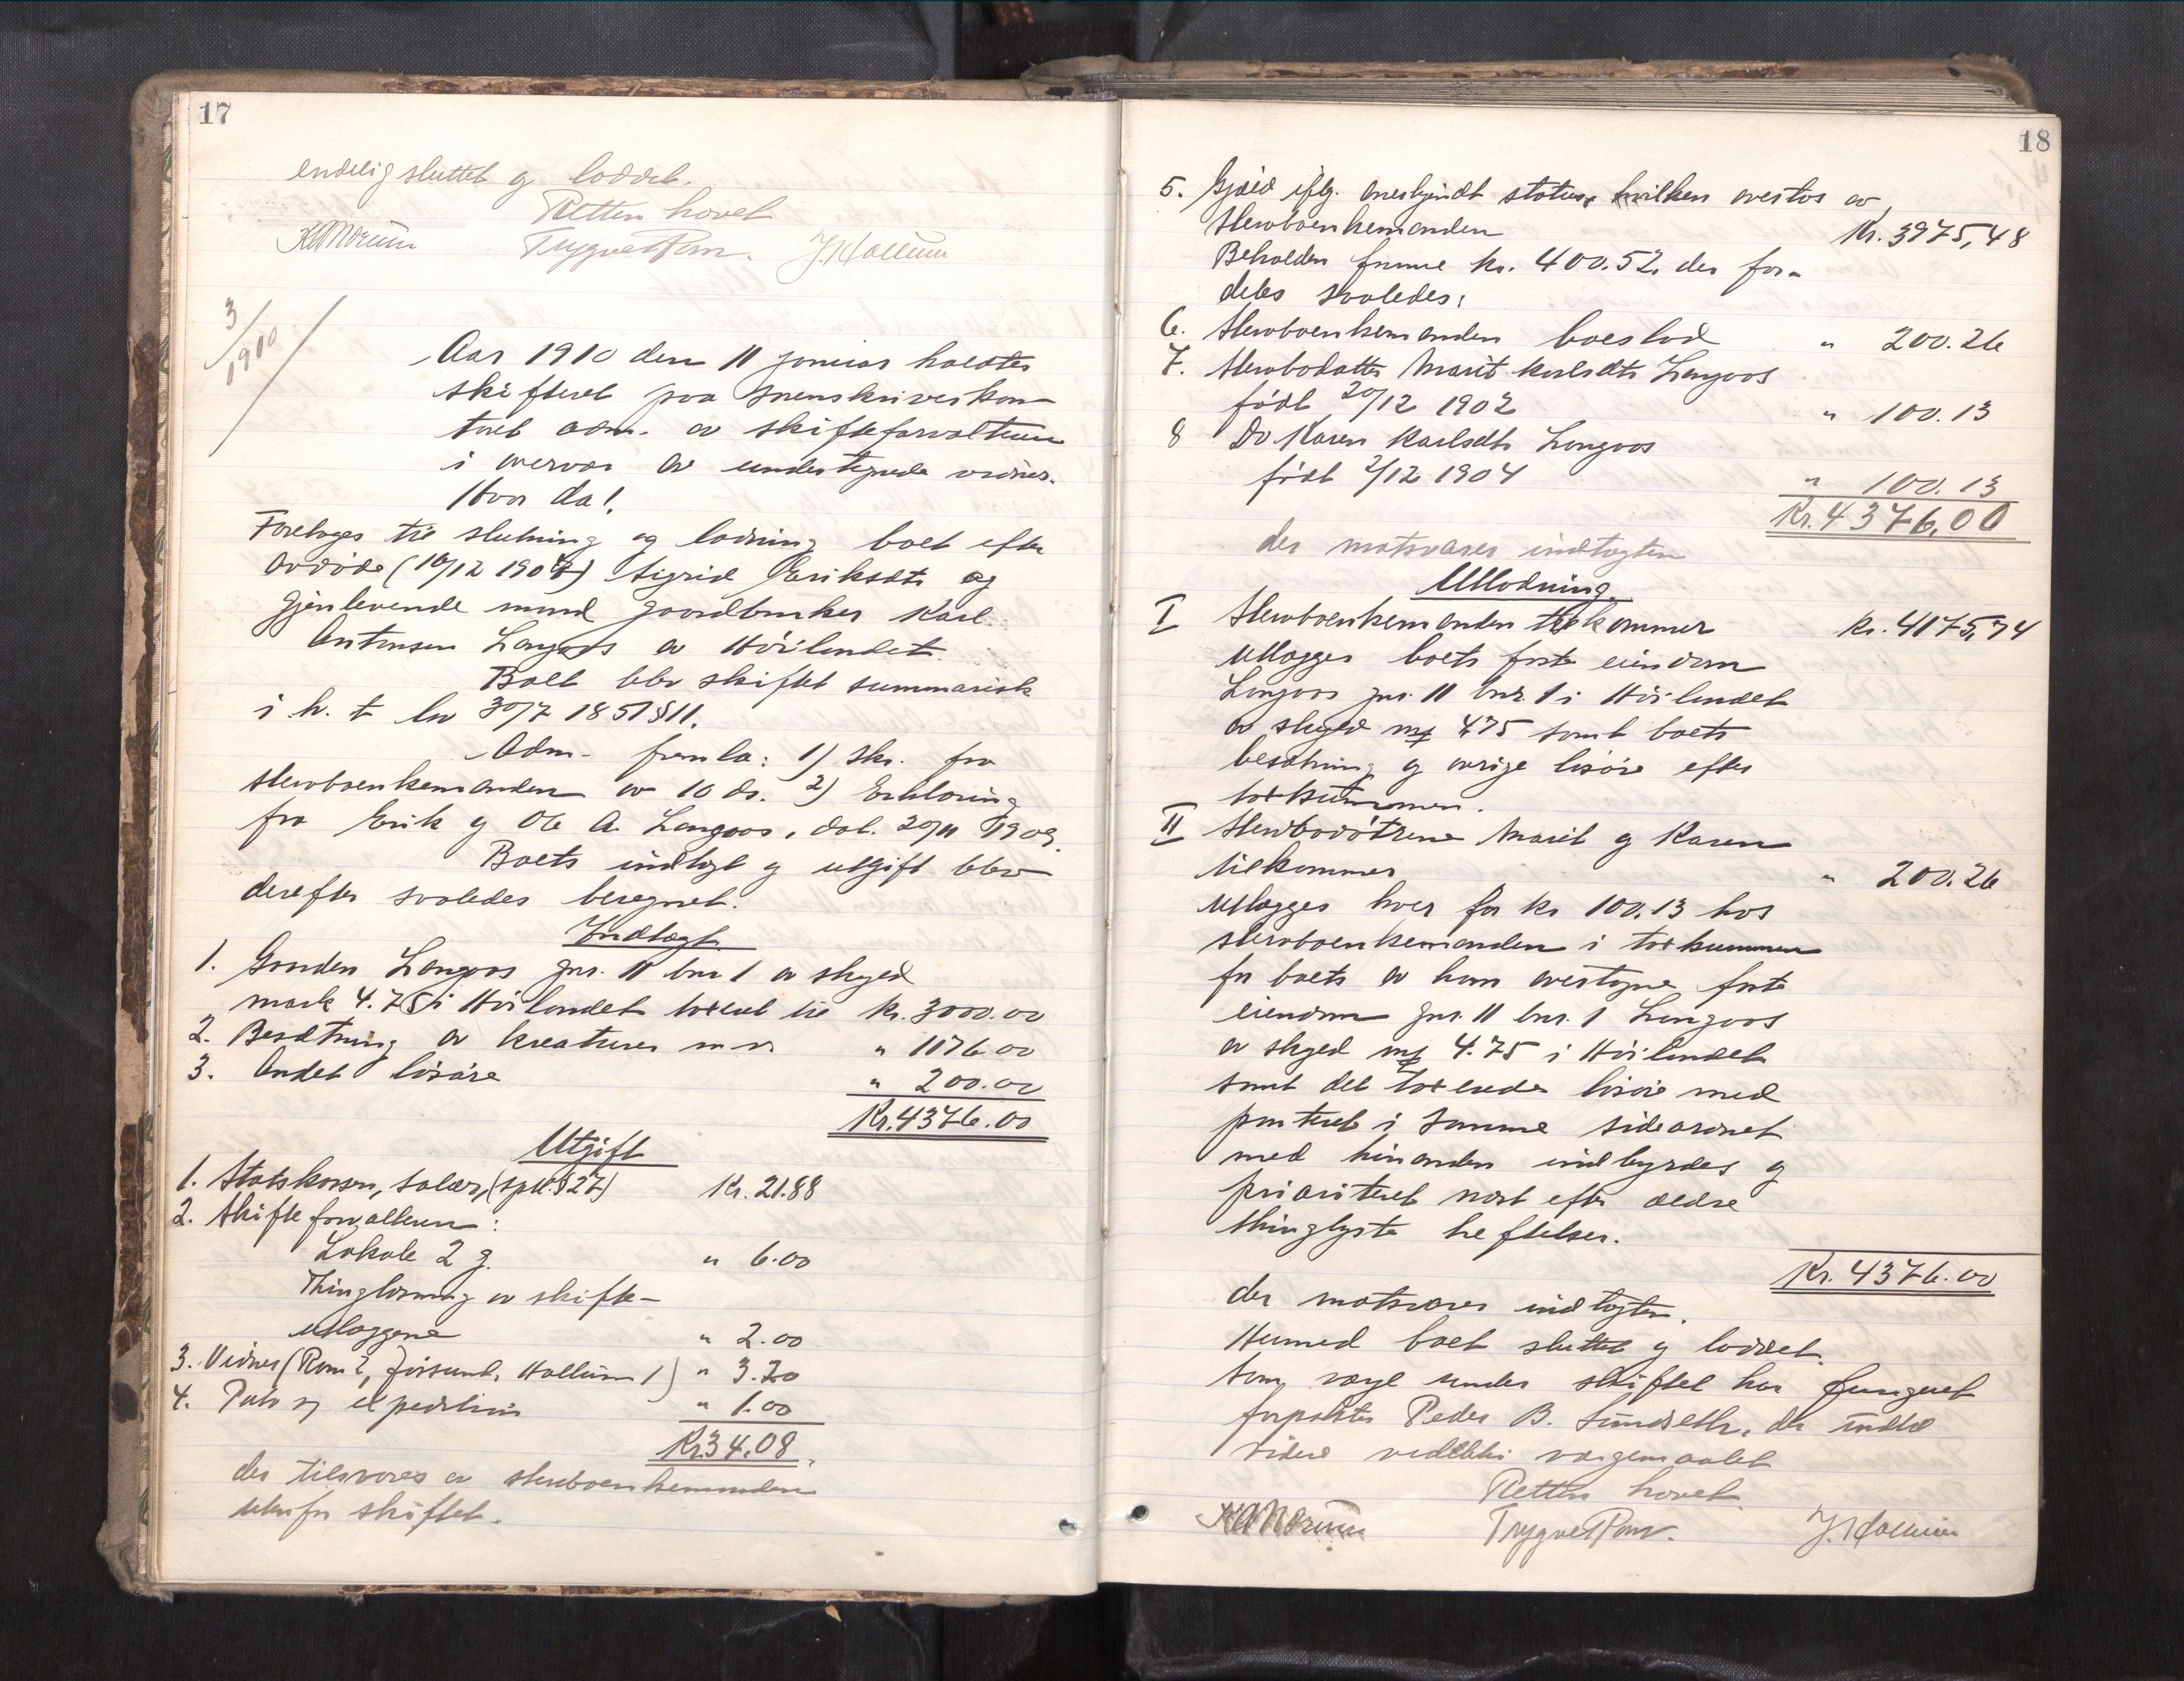 17
endelig sluttet og loddet.
Retten hævet
KANorum TrygveRom. J Hallum
3/1910
Aar 1910 den 11 januar holdtes
skifteret paa sorenskriverkon-
toret adm. av skifteforvalteren
i overvær av undertegnede vidner.
Hvor da!
Foretoges til slutning og lodning boet efter
avdøde (10/12 1907) Sigrid Eriksdtr og
gjenlevende mand gaardbruker Karl
Antonsen Langaas av Høilandet.
Boet blev skiftet summarisk
i h. t lov 30/7 1851 § 11.
Adm. fremla: 1) Skr. fra
stervboenkemanden av 10 ds. 2) Erklæring
fra Erik og Ole A. Langaas, dat. 20/11 1909.
Boets indtægt og utgift blev
derefter saaledes beregnet.
Indtægt
1. Gaarden Langaas gnr. 11 bnr 1 av skyld
mark 4.75 i Høilandet taxeret til Kr. 3000.00
2. Besætning av kreaturer m v. " 1176.00
3. Andet løsøre " 200.00
Kr. 4376.00
Utgift
1. Statskassen, salær, (sptl. § 27) Kr. 21.88
2. Skifteforvalteren:
Lokale 2 g. " 6.00
Thinglæsning av skifte-
utlæggene " 2.00
3. Vidner (Rom 2, Jørsumb. Hallum 1) " 3.20
4. Porto og expedition " 1.00
Kr 34.08.
der tilsvares av stervboenkemanden
utenfor skiftet.
18
5. Gjæld iflg. oversendt status, hvilken overtas av
stervboenkemanden Kr. 3975,48
Beholden formue kr. 400.52. der for-
deles saaledes:
6. Stervboenkemanden boeslod " 200.26
7. Stervbodatter Marit Karlsdtr Langaas
født 20/12 1902 " 100.13
8 Do Karen Karlsdtr Langaas
født 2/12 1904 " 100.13
Kr. 4376,00
der motsvarer indtægten
Utlodning.
I Stervboenkemanden tilkommer Kr. 4175,74
utlægges boets faste eiendom
Langaas gnr. 11 bnr. 1 i Høilandet
av skyld mk 4,75 samt boets
besætning og øvrige løsøre efter
taxtsummen.
II Stervbodøtrene Marit og Karen
tilkommer " 200.26
utlægges hver for kr 100.13 hos
stervboenkemanden i taxtsummen
for boets av ham overtagne faste
eiendom gnr. 11 bnr. 1 Langaas
av skyld mk 4.75 i Høilandet
samt det taxerede løsøre med
panteret i samme sideordnet
med hinanden indbyrdes og
prioriteret næst efter ældre
thinglyste heftelser.
Kr. 4376.00
der motsvarer indtægten.
Hermed boet sluttet og loddet.
Som værge under skiftet har fungeret
forpakter Peder B. Sundseth, der indtil
videre vedblir værgemaalet
Retten hævet.
KANorum TrygveRom. J. Hallum